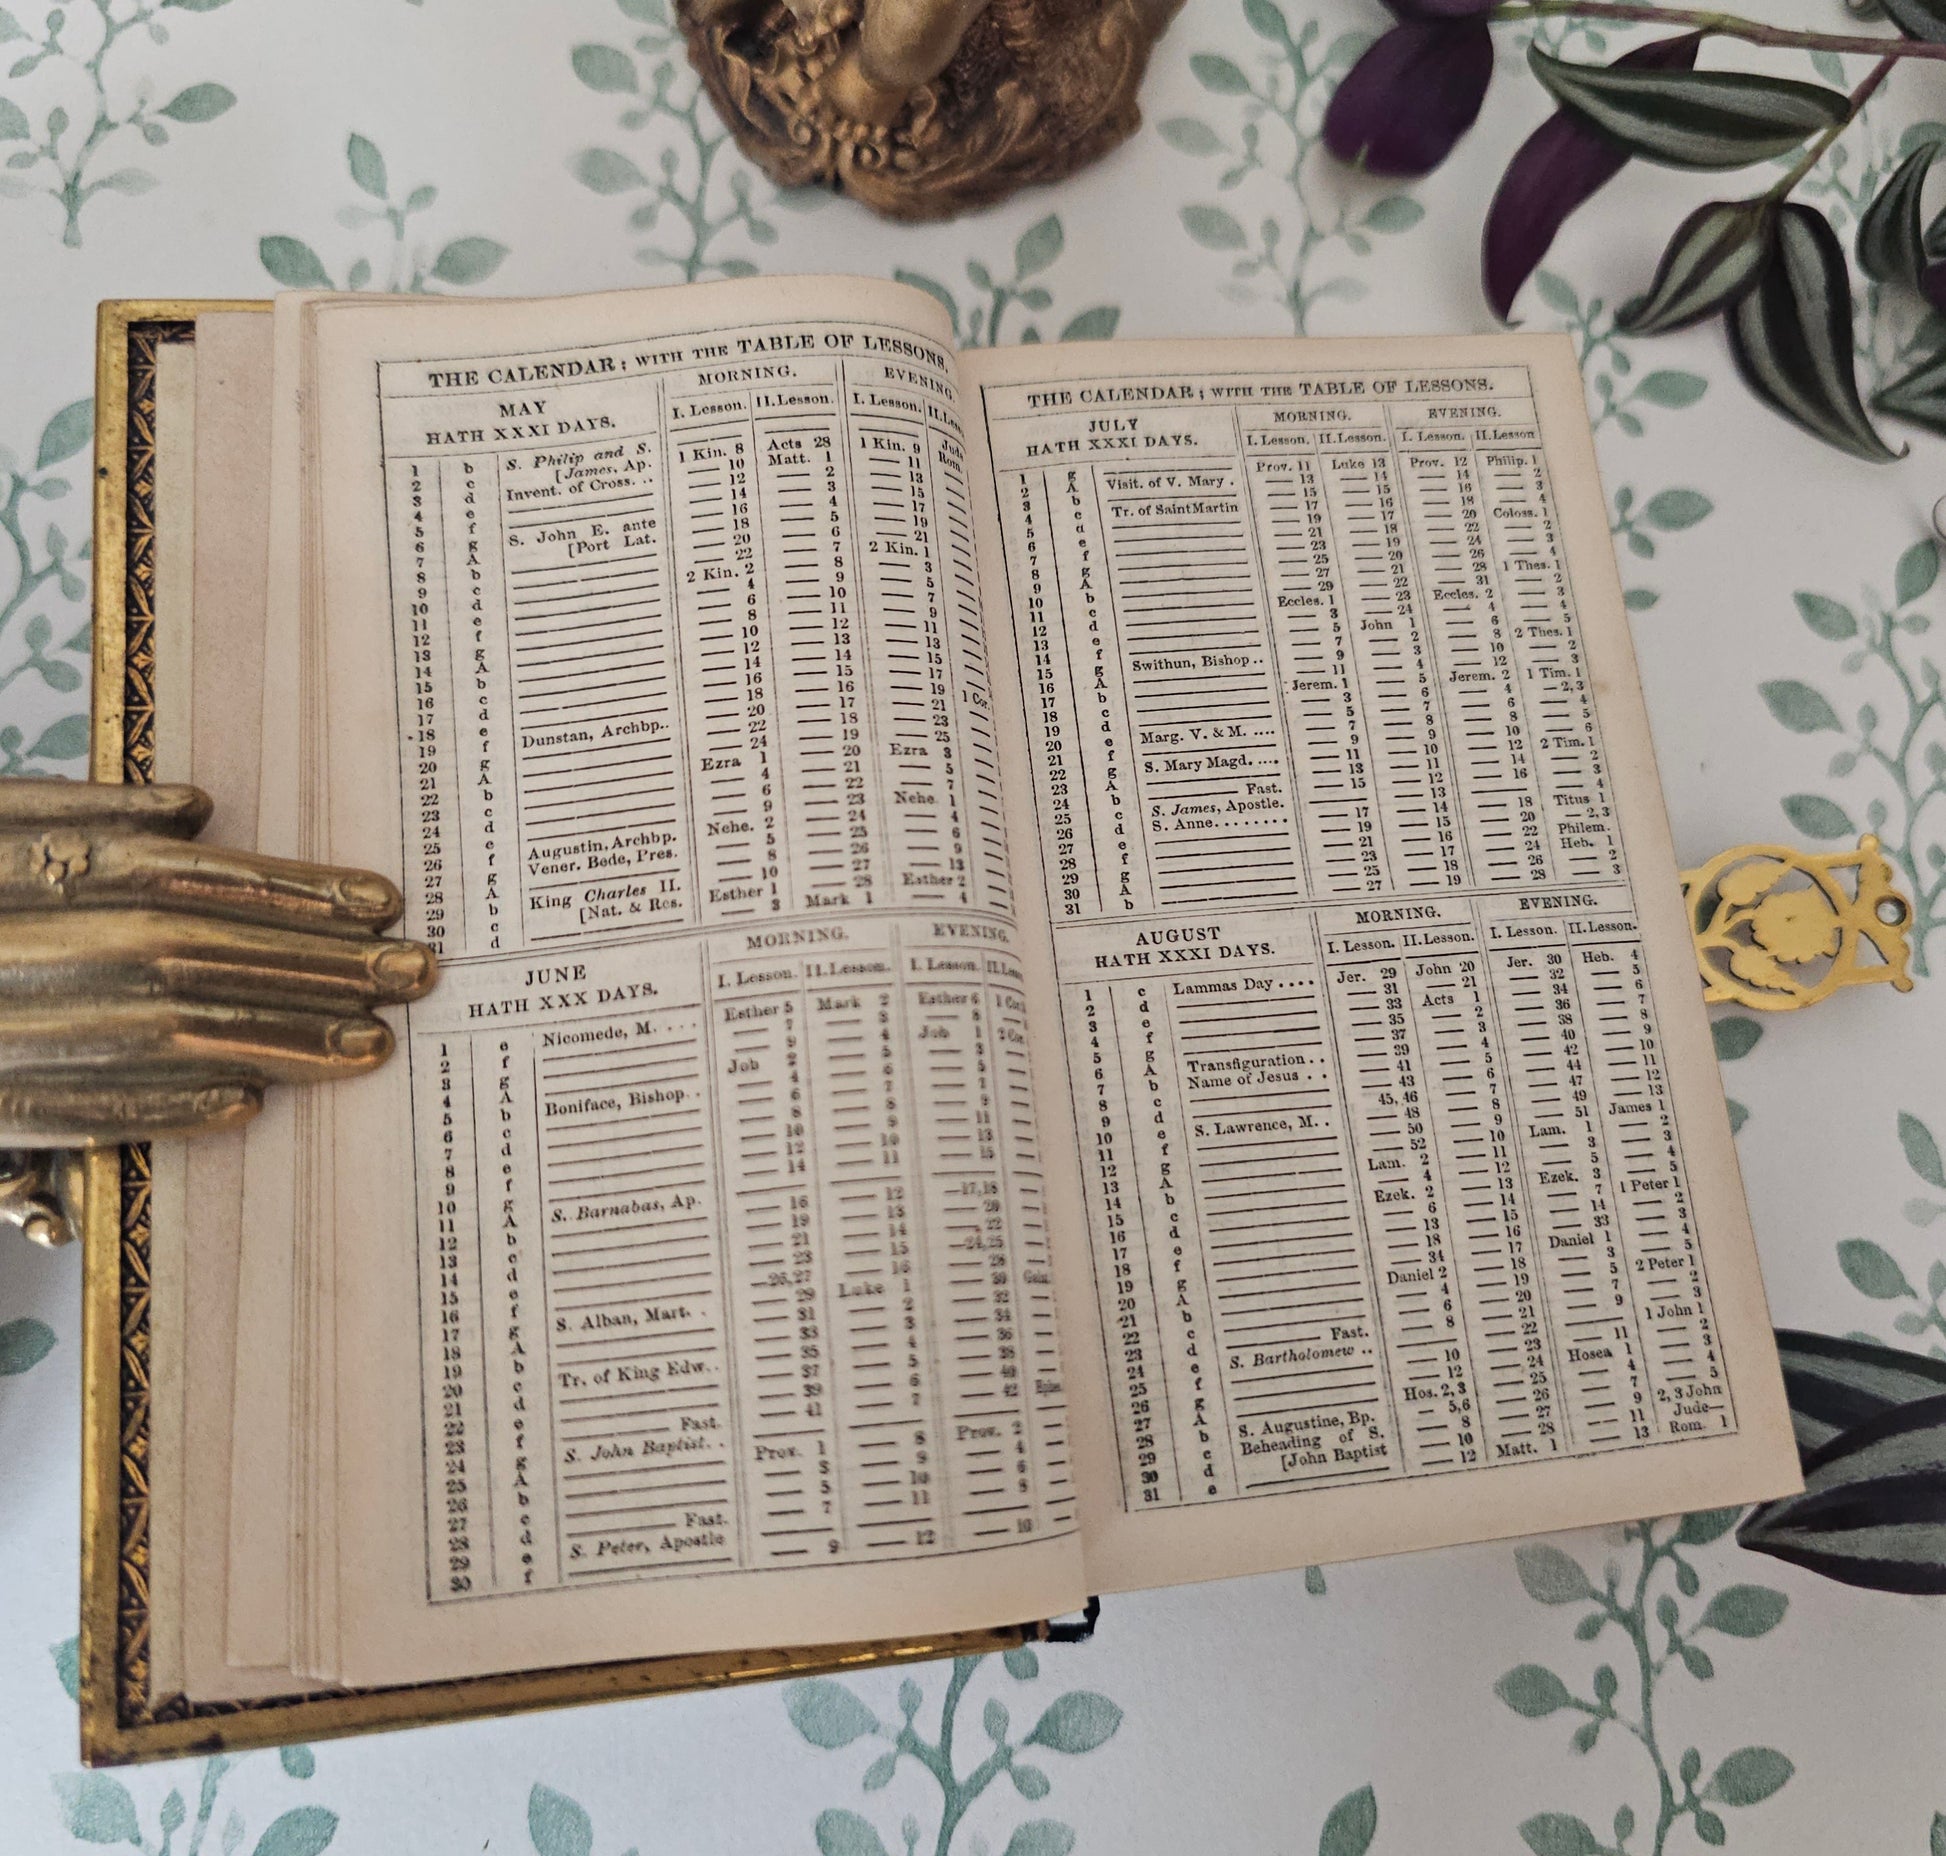 THE CALENDAR; WITH THE TABLE OF LESSONS.
MAY HATH XXXI DAYS.
MORNING. EVENING.
I. Lesson. II. Lesson. I. Lesson.
1 b S. Philip and S. [James, Ap.
2 c 1 Kin. 8 Acts 28 1 Kin. 9
3 d Invent. of Cross. .. — 10 Matt. 1 — 11
4 e — 12 — 2 — 13
5 f — 14 — 3 — 15
6 g S. John E. ante [Port Lat. — 16 — 4 — 17
7 A — 18 — 5 — 19
8 b — 20 — 6 — 21
9 c — 22 — 7 2 Kin. 1
10 d 2 Kin. 2 — 8 — 3
11 e — 4 — 9 — 5
12 f — 6 — 10 — 7
13 g — 8 — 11 — 9
14 A — 10 — 12 — 11
15 b — 12 — 13 — 13
16 c — 14 — 14 — 15
17 d — 16 — 15 — 17
18 e — 18 — 16 — 19
19 f Dunstan, Archbp.. — 20 — 17 — 21
20 g — 22 — 18 — 23
21 A — 24 — 19 — 25
22 b Ezra 1 — 20 Ezra 3
23 c — 4 — 21 — 5
24 d — 6 — 22 — 7
25 e — 9 — 23 Nehe. 1
26 f Augustin, Archbp. Nehe. 2 — 24 — 4
27 g Vener. Bede, Pres. — 5 — 25 — 6
28 A — 8 — 26 — 9
29 b King Charles II. [Nat. & Res. — 10 — 27 — 13
30 c Esther 1 — 28 Esther 2
31 d — 3 Mark 1 — 4
JUNE HATH XXX DAYS.
MORNING. EVENING.
I. Lesson. II. Lesson. I. Lesson.
1 e Nicomede, M. . . . Esther 5 Mark 2 Esther 6
2 f — 7 — 3 — 8
3 g — 9 — 4 Job 1
4 A Job 2 — 5 — 3
5 b Boniface, Bishop. . — 4 — 6 — 5
6 c — 6 — 7 — 7
7 d — 8 — 8 — 9
8 e — 10 — 9 — 11
9 f — 12 — 10 — 13
10 g — 14 — 11 — 15
11 A S. Barnabas, Ap.
12 b — 16 — 12 —17,18
13 c — 19 — 13 — 20
14 d — 21 — 14 — 22
15 e — 23 — 15 —24,25
16 f —26,27 — 16 — 28
17 g S. Alban, Mart. . — 29 Luke 1 — 30
18 A — 31 — 2 — 32
19 b — 33 — 3 — 34
20 c Tr. of King Edw.. — 35 — 4 — 36
21 d — 37 — 5 — 38
22 e — 39 — 6 — 40
23 f Fast. — 41 — 7 — 42
24 g S. John Baptist. .
25 A Prov. 1 — 8 Prov. 2
26 b — 3 — 9 — 4
27 c — 5 — 10 — 6
28 d Fast. — 7 — 11 — 8
29 e S. Peter, Apostle
30 f — 9 — 12 — 10
THE CALENDAR; WITH THE TABLE OF LESSONS.
JULY HATH XXXI DAYS.
MORNING. EVENING.
I. Lesson. II. Lesson. I. Lesson. II. Lesson
1 g Prov. 11 Luke 13 Prov. 12 Philip. 1
2 A Visit. of V. Mary . — 13 — 14 — 14 — 2
3 b — 15 — 15 — 16 — 3
4 c Tr. of Saint Martin — 17 — 16 — 18 — 4
5 d — 19 — 17 — 20 Coloss. 1
6 e — 21 — 18 — 22 — 2
7 f — 23 — 19 — 24 — 3
8 g — 25 — 20 — 26 — 4
9 A — 27 — 21 — 28 1 Thes. 1
10 b — 29 — 22 — 31 — 2
11 c Eccles. 1 — 23 Eccles. 2 — 3
12 d — 3 — 24 — 4 — 4
13 e — 5 John 1 — 6 — 5
14 f — 7 — 2 — 8 2 Thes. 1
15 g Swithun, Bishop .. — 9 — 3 — 10 — 2
16 A — 11 — 4 — 12 — 3
17 b Jerem. 1 — 5 Jerem. 2 1 Tim. 1
18 c — 3 — 6 — 4 — 2,3
19 d — 5 — 7 — 6 — 4
20 e Marg. V. & M. .... — 7 — 8 — 8 — 5
21 f — 9 — 9 — 10 — 6
22 g S. Mary Magd. .... — 11 — 10 — 12 2 Tim. 1
23 A — 13 — 11 — 14 — 2
24 b Fast. — 15 — 12 — 16 — 3
25 c S. James, Apostle. — 13 — 4
26 d S. Anne........ — 17 — 14 — 18 Titus 1
27 e — 19 — 15 — 20 — 2,3
28 f — 21 — 16 — 22 Philem.
29 g — 23 — 17 — 24 Heb. 1
30 A — 25 — 18 — 26 — 2
31 b — 27 — 19 — 28 — 3
AUGUST HATH XXXI DAYS.
MORNING. EVENING.
I. Lesson. II. Lesson. I. Lesson. II. Lesson.
1 c Lammas Day .... Jer. 29 John 20 Jer. 30 Heb. 4
2 d — 31 — 21 — 32 — 5
3 e — 33 Acts 1 — 34 — 6
4 f — 35 — 2 — 36 — 7
5 g — 37 — 3 — 38 — 8
6 A Transfiguration. . — 39 — 4 — 40 — 9
7 b Name of Jesus . . — 41 — 5 — 42 — 10
8 c — 43 — 6 — 44 — 11
9 d 45, 46 — 7 — 47 — 12
10 e S. Lawrence, M. . — 48 — 8 — 49 — 13
11 f — 50 — 9 — 51 James 1
12 g — 52 — 10 Lam. 1 — 2
13 A Lam. 2 — 11 — 3 — 3
14 b — 4 — 12 — 5 — 4
15 c Ezek. 2 — 13 Ezek. 3 — 5
16 d — 6 — 14 — 7 1 Peter 1
17 e — 13 — 15 — 14 — 2
18 f — 18 — 16 — 33 — 3
19 g — 34 — 17 Daniel 1 — 4
20 A Daniel 2 — 18 — 3 — 5
21 b — 4 — 19 — 5 2 Peter 1
22 c — 6 — 20 — 7 — 2
23 d Fast. — 8 — 21 — 9 — 3
24 e S. Bartholomew .. — 22 1 John 1
25 f — 10 — 23 — 11 — 2
26 g — 12 — 24 Hosea 1 — 3
27 A Hos. 2, 3 — 25 — 4 — 4
28 b S. Augustine, Bp. — 5,6 — 26 — 7 — 5
29 c Beheading of S. [John Baptist — 8 — 27 — 9 2, 3 John
30 d — 10 — 28 — 11 Jude—
31 e — 12 Matt. 1 — 13 Rom. 1